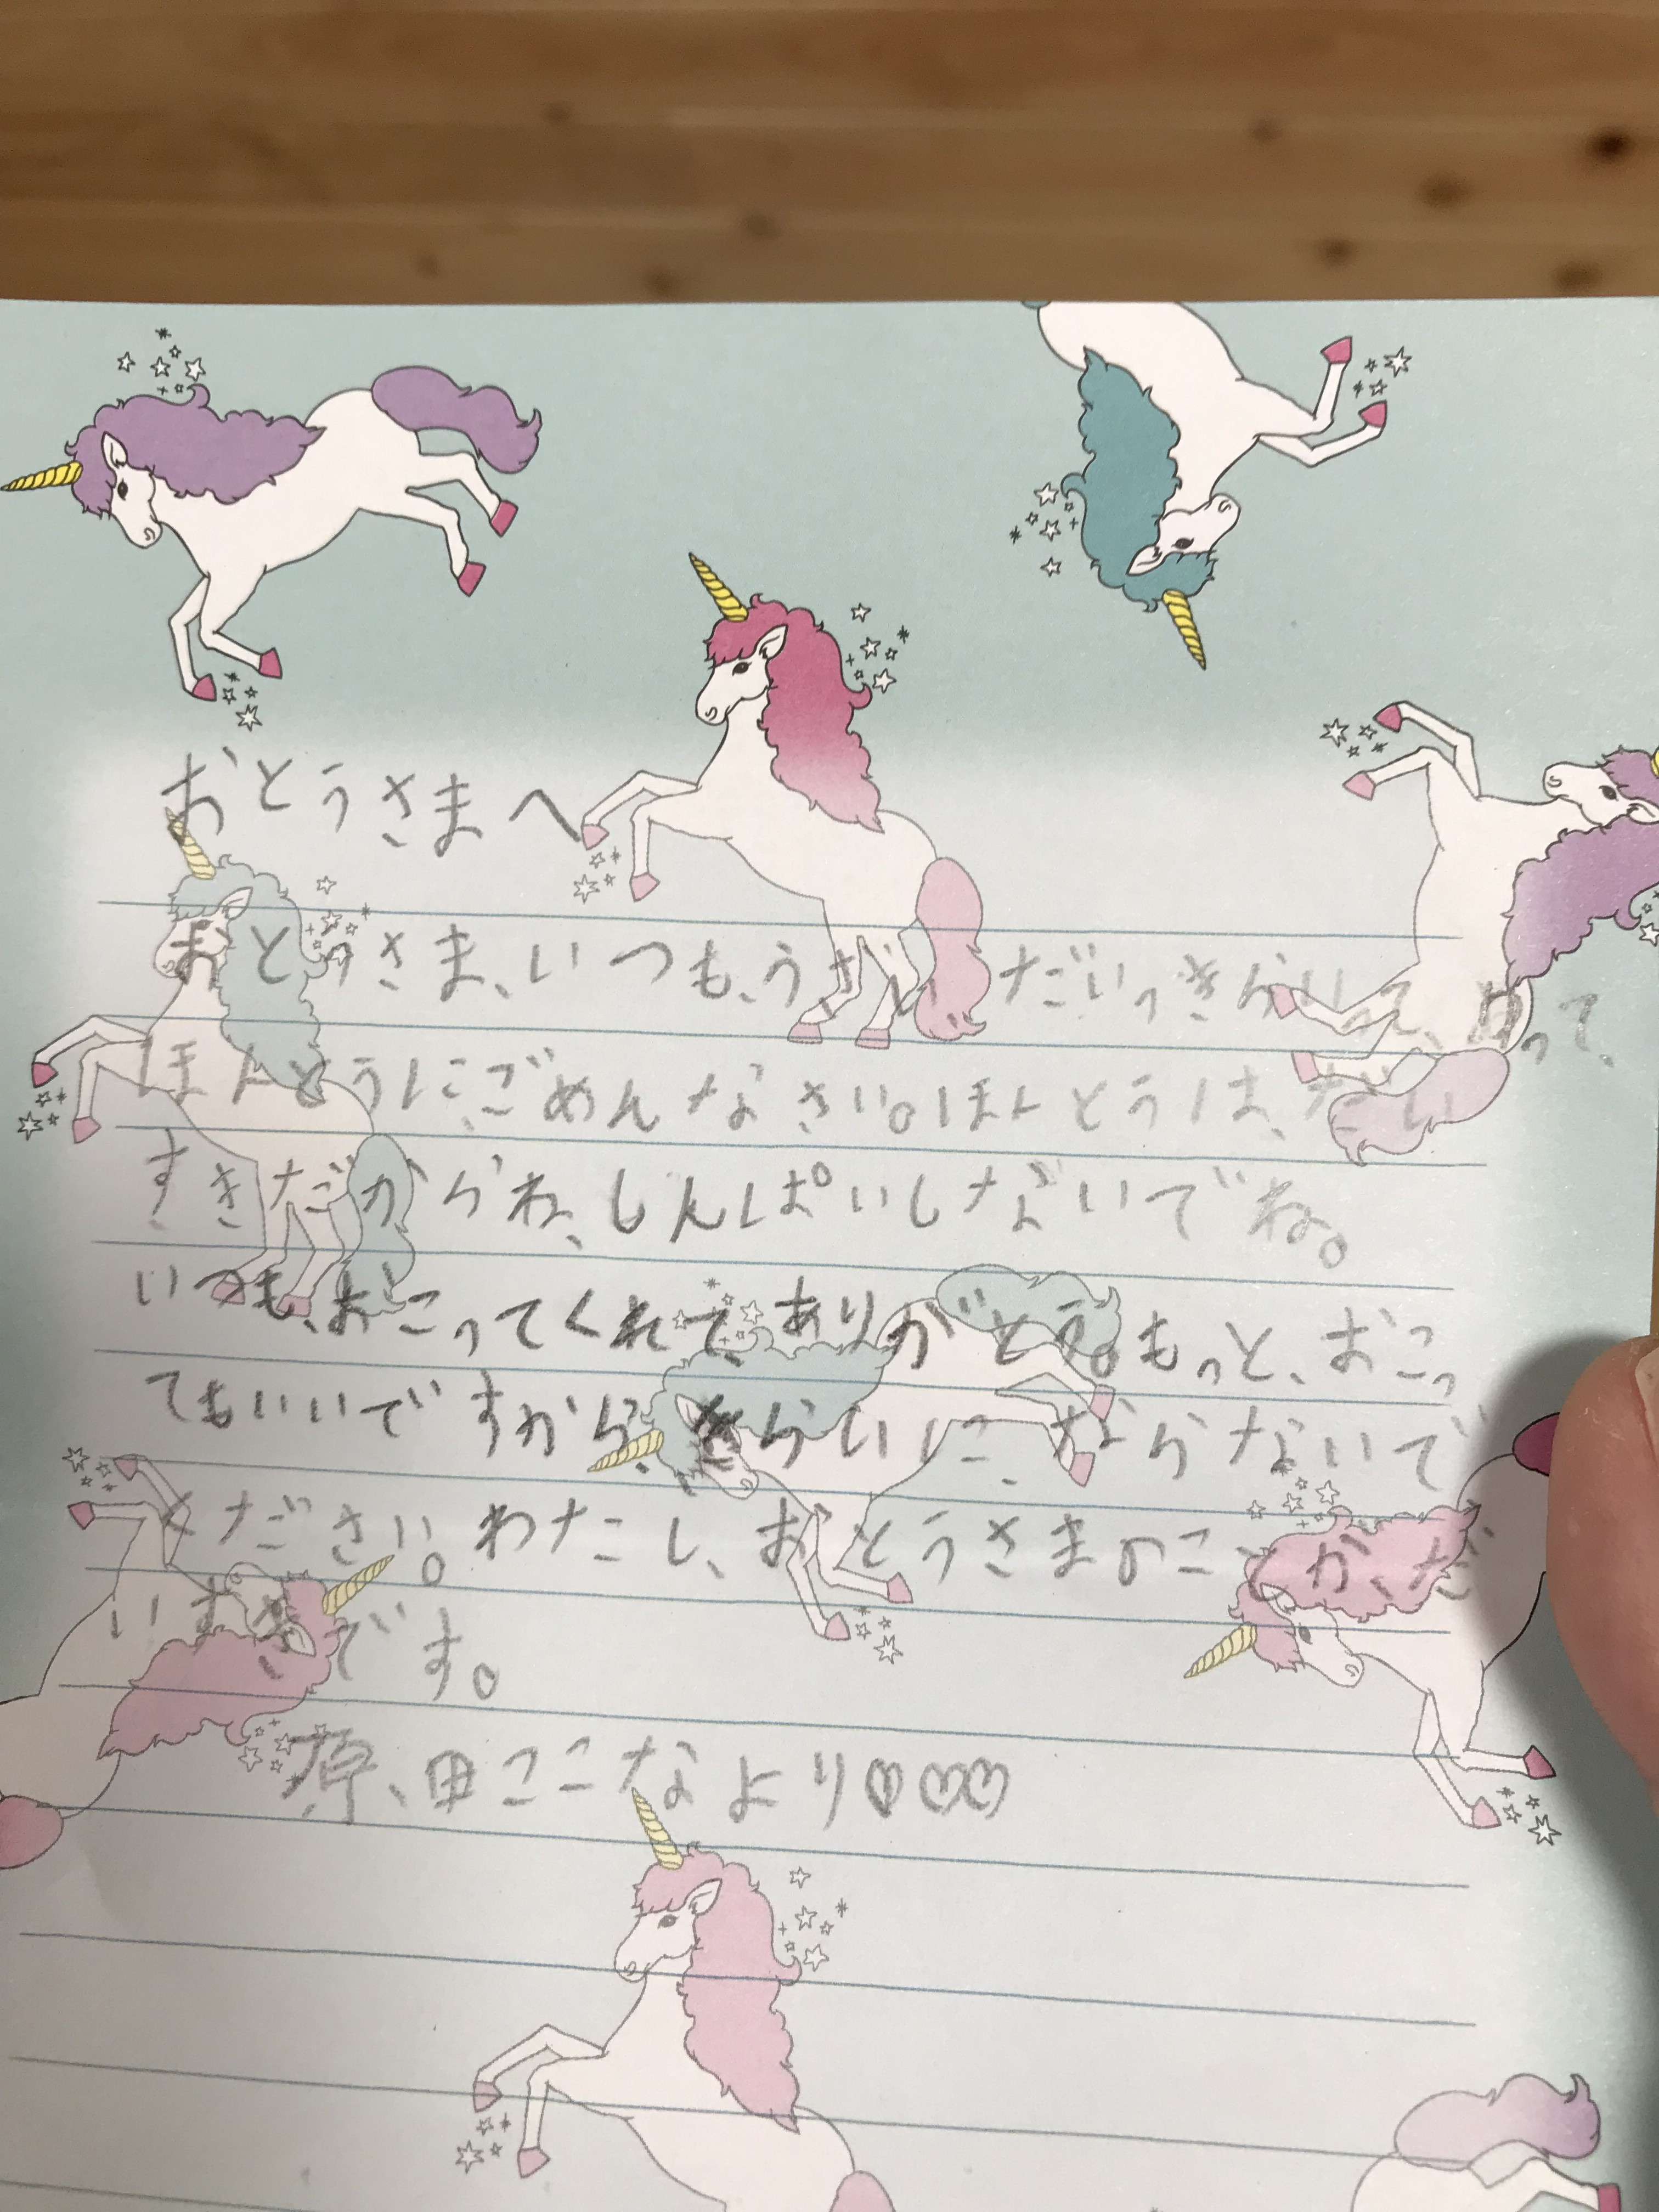 おとうさまへ
おとうさま、いつも、うざい だいっきらいって、ゆって、
ほんとうに、ごめんなさい。ほんとうは、だい
すきだからね、しんぱいしないでね。
いつも、おこってくれて、ありがとう。もっと、おこっ
てもいいですから、きらいに、ならないで
ください。わたし、おとうさまのことが、だ
いすきです。
原、田ここなより♡♡♡